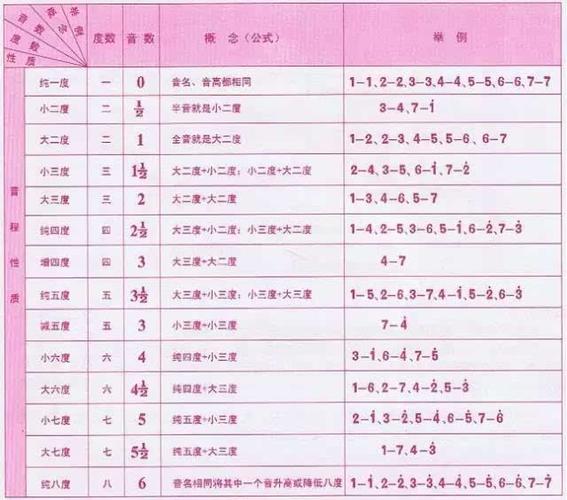 举例
概念
音数
度数
性质
度数 音数 概 念（公式） 举 例
音程性质
纯一度 一 0 音名、音高都相同 1-1、2-2、3-3、4-4、5-5、6-6、7-7
小二度 二 ½ 半音就是小二度 3-4、7-1̇
大二度 二 1 全音就是大二度 1-2、2-3、4-5、5-6、6-7
小三度 三 1½ 大二度+小二度；小二度+大二度 2-4、3-5、6-1̇、7-2̇
大三度 三 2 大二度+大二度 1-3、4-6、5-7
纯四度 四 2½ 大三度+小二度；小三度+大二度 1-4、2-5、3-6、5-1̇、6-2̇、7-3̇
增四度 四 3 大三度+大二度 4-7
纯五度 五 3½ 大三度+小三度；小三度+大三度 1-5、2-6、3-7、4-1̇、5-2̇、6-3̇
减五度 五 3 小三度+小三度 7-4̇
小六度 六 4 纯四度+小三度 3-1̇、6-4̇、7-5̇
大六度 六 4½ 纯四度+大三度 1-6、2-7、4-2̇、5-3̇
小七度 七 5 纯五度+小三度 2-1̇、3-2̇、5-4̇、6-5̇、7-6̇
大七度 七 5½ 纯五度+大三度 1-7、4-3̇
纯八度 八 6 音名相同将其中一个音升高或降低八度 1-1̇、2-2̇、3-3̇、4-4̇、5-5̇、6-6̇、7-7̇